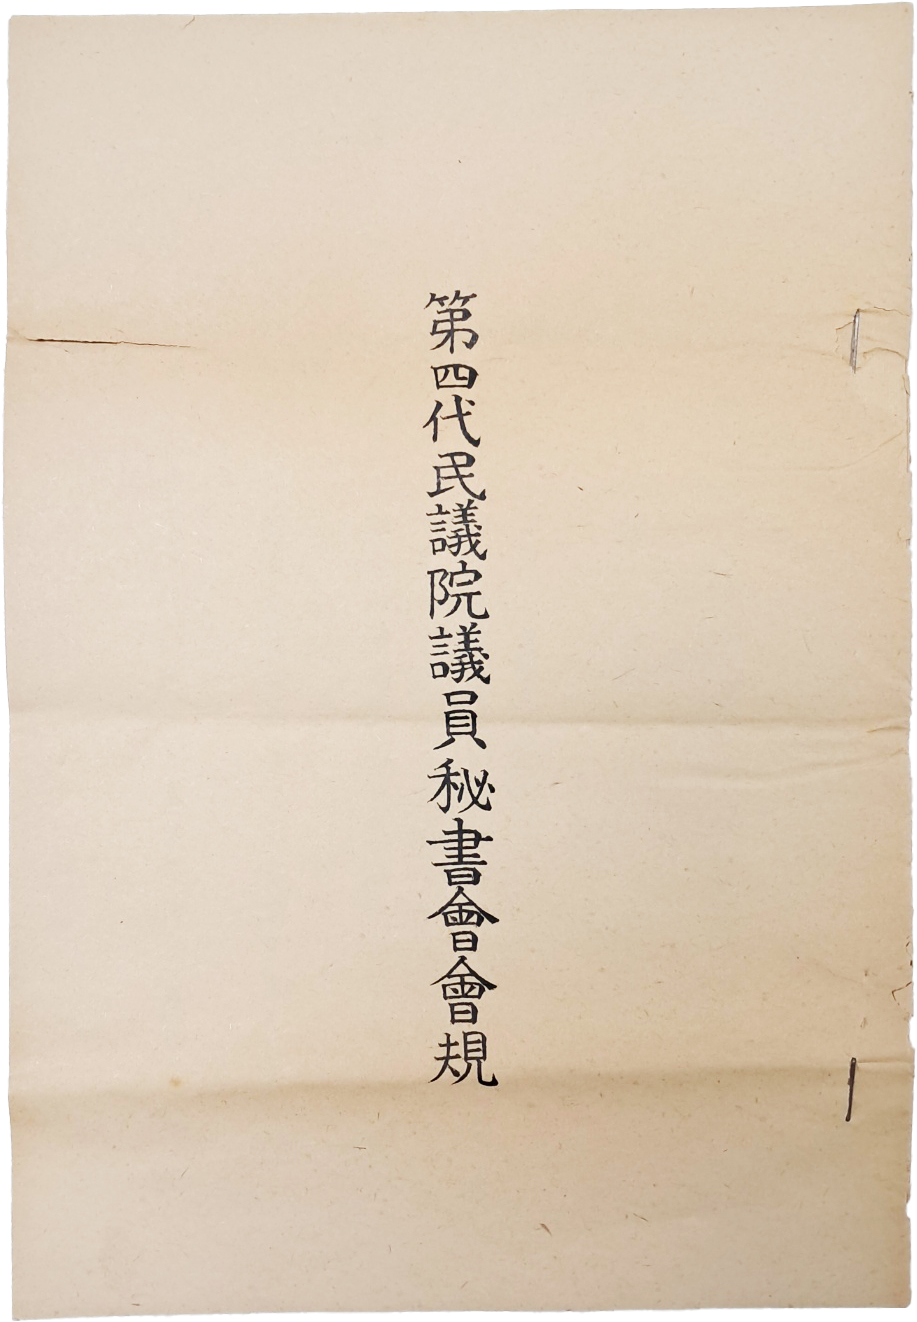 第四代民議院議員秘書會會規